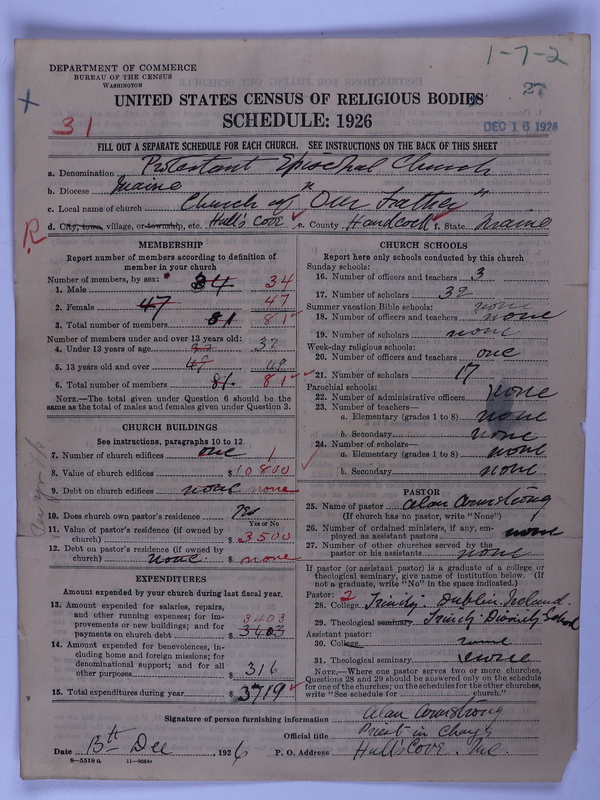 1-7-2
DEPARTMENT OF COMMERCE
BUREAU OF THE CENSUS
WASHINGTON
27
UNITED STATES CENSUS OF RELIGIOUS BODIES
SCHEDULE: 1926
31
DEC 16 1926
FILL OUT A SEPARATE SCHEDULE FOR EACH CHURCH. SEE INSTRUCTIONS ON THE BACK OF THIS SHEET
a. Denomination Protestant Episcopal Church
b. Diocese Maine
c. Local name of church Church of "Our Father"
R
d. City, town, village, or township, etc. Hull's Cove e. County Handcock f. State Maine
MEMBERSHIP
Report number of members according to definition of
member in your church
Number of members, by sex:
1. Male 34 34
2. Female 47 47
3. Total number of members 81 81
Number of members under and over 13 years old:
4. Under 13 years of age 32
5. 13 years old and over 49 49
6. Total number of members 81 81
NOTE.—The total given under Question 6 should be the
same as the total of males and females given under Question 3.
CHURCH BUILDINGS
See instructions, paragraphs 10 to 12
7. Number of church edifices one 1
8. Value of church edifices $10800
9. Debt on church edifices none $none
10. Does church own pastor's residence Yes
Yes or No
11. Value of pastor's residence (if owned by
church) $3500
12. Debt on pastor's residence (if owned by
church) none. $none
EXPENDITURES
Amount expended by your church during last fiscal year.
13. Amount expended for salaries, repairs,
and other running expenses; for im-
provements or new buildings; and for
payments on church debt $3403
3403
14. Amount expended for benevolences, in-
cluding home and foreign missions; for
denominational support; and for all
other purposes $316
15. Total expenditures during year $3719
CHURCH SCHOOLS
Report here only schools conducted by this church
Sunday schools:
16. Number of officers and teachers 3
17. Number of scholars 32
Summer vacation Bible schools: none
18. Number of officers and teachers none
19. Number of scholars none
Week-day religious schools:
20. Number of officers and teachers one
21. Number of scholars 17
Parochial schools:
22. Number of administrative officers none
23. Number of teachers—
a. Elementary (grades 1 to 8) none
b. Secondary none
24. Number of scholars—
a. Elementary (grades 1 to 8) none
b. Secondary none
PASTOR
25. Name of pastor Alan Armstrong
(If church has no pastor, write "None")
26. Number of ordained ministers, if any, em-
ployed as assistant pastors none
27. Number of other churches served by the
pastor or his assistants none
If pastor (or assistant pastor) is a graduate of a college or
theological seminary, give name of institution below. (If
not a graduate, write "No" in the space indicated.)
Pastor: 2
28. College Trinity. Dublin. Ireland.
29. Theological seminary Trinity Divinity School
Assistant pastor:
30. College none
31. Theological seminary none
NOTE.—Where one pastor serves two or more churches,
Questions 28 and 29 should be answered only on the schedule
for one of the churches; on the schedules for the other churches,
write "See schedule for church."
Signature of person furnishing information Alan Armstrong
Official title Priest in Charge
Date 13th Dec, 1926 P. O. Address Hull's Cove. Me.
8—5518 a 11—9064